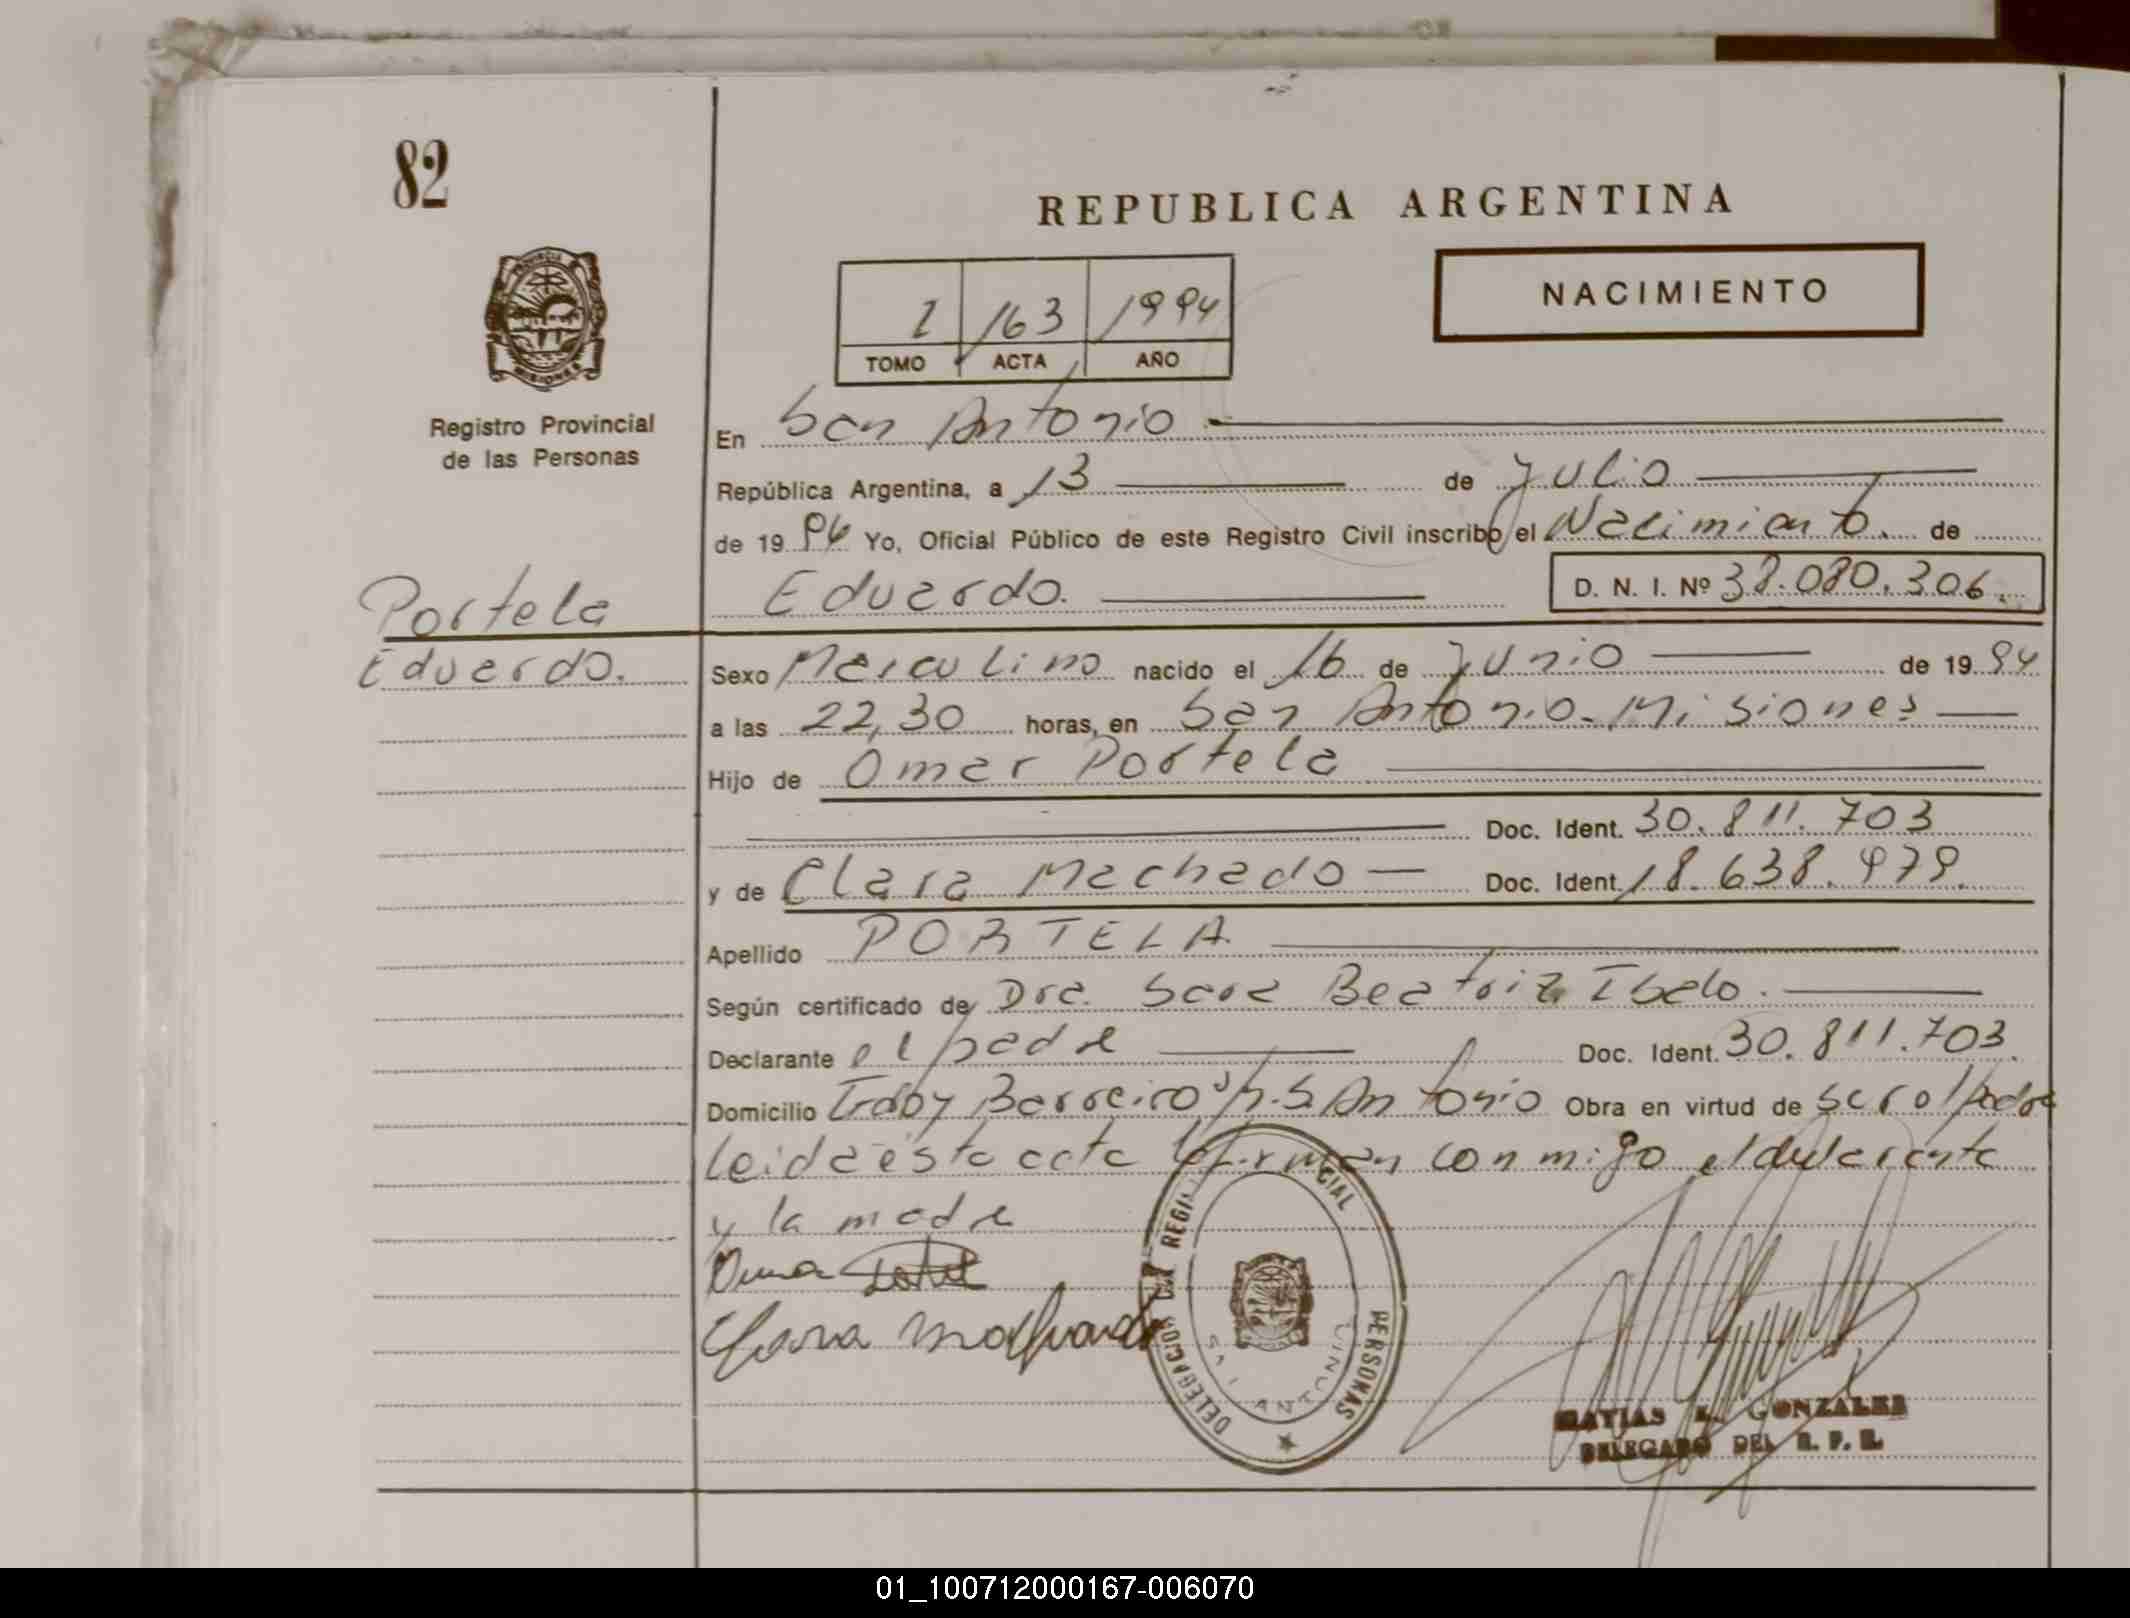 82
REPUBLICA ARGENTINA
NACIMIENTO
1 163 1994
TOMO ACTA AÑO
Registro Provincial
de las Personas
En San Antonio
República Argentina, a 13 de Julio
de 19 94 Yo, Oficial Público de este Registro Civil inscribo el Nacimiento. de
Eduardo. D. N. I. Nº 38.080.306.
Portela
Eduardo.
Sexo Masculino nacido el 16 de Junio de 19 94
a las 22,30 horas, en San Antonio. Misiones
Hijo de Omar Portela
Doc. Ident. 30.811.703
y de Clara Machado Doc. Ident. 18.638.979.
Apellido PORTELA
Según certificado de Dra. Sara Beatriz Ibalo.
Declarante el padre Doc. Ident. 30.811.703.
Domicilio Barreiro s/n. S. Antonio Obra en virtud de ser el padre
Leida esta acta la firman conmigo el declarante
y la madre
Omar Portel
Clara Machado
DELEGACION DEL REGIS CIAL PERSONAS
SAN ANTONIO
MATIAS R. GONZALEZ
DELEGADO DEL R. P. P.
01_100712000167-006070